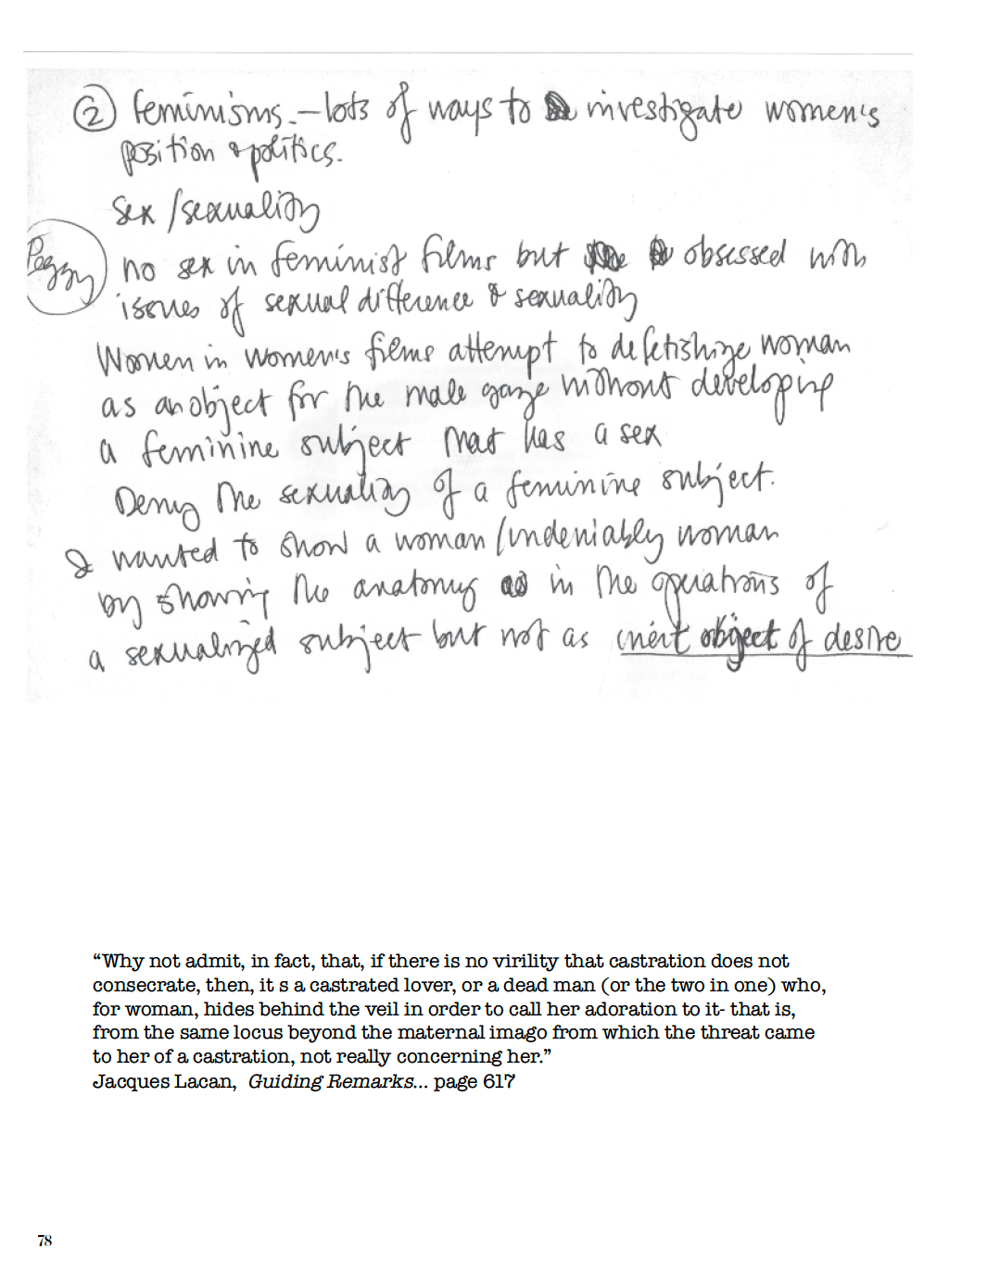 ② feminisms. – lots of ways to investigate women's
position & politics.
Sex / sexuality
Peggy
no sex in feminist films but obsessed with
issues of sexual difference & sexuality
Women in women's films attempt to defetishize woman
as an object for the male gaze without developing
a feminine subject that has a sex
Deny the sexuality of a feminine subject.
I wanted to show a woman / undeniably woman
by showing the anatomy in the operations of
a sexualized subject but not as inert object of desire
“Why not admit, in fact, that, if there is no virility that castration does not
consecrate, then, it s a castrated lover, or a dead man (or the two in one) who,
for woman, hides behind the veil in order to call her adoration to it- that is,
from the same locus beyond the maternal imago from which the threat came
to her of a castration, not really concerning her.”
Jacques Lacan, Guiding Remarks... page 617
78